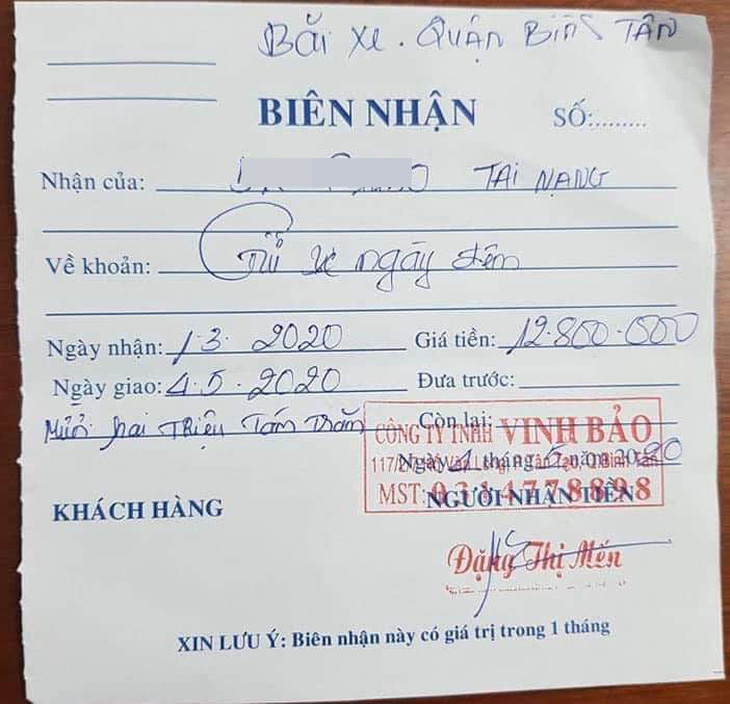 Bãi xe. Quận Bình Tân
BIÊN NHẬN
SỐ:.........
Nhận của: TAI NẠNG
Về khoản: Giữ xe ngày đêm
Ngày nhận: 1.3. 2020 Giá tiền: 12.800.000
Ngày giao: 4.5.2020 Đưa trước:
Mười hai Triệu Tám Trăm Còn lại:
CÔNG TY TNHH VINH BẢO
Ngày 4 tháng 5 năm 2020
MST: 8898
NGƯỜI NHẬN TIỀN
KHÁCH HÀNG
Đặng Thị Mến
XIN LƯU Ý: Biên nhận này có giá trị trong 1 tháng